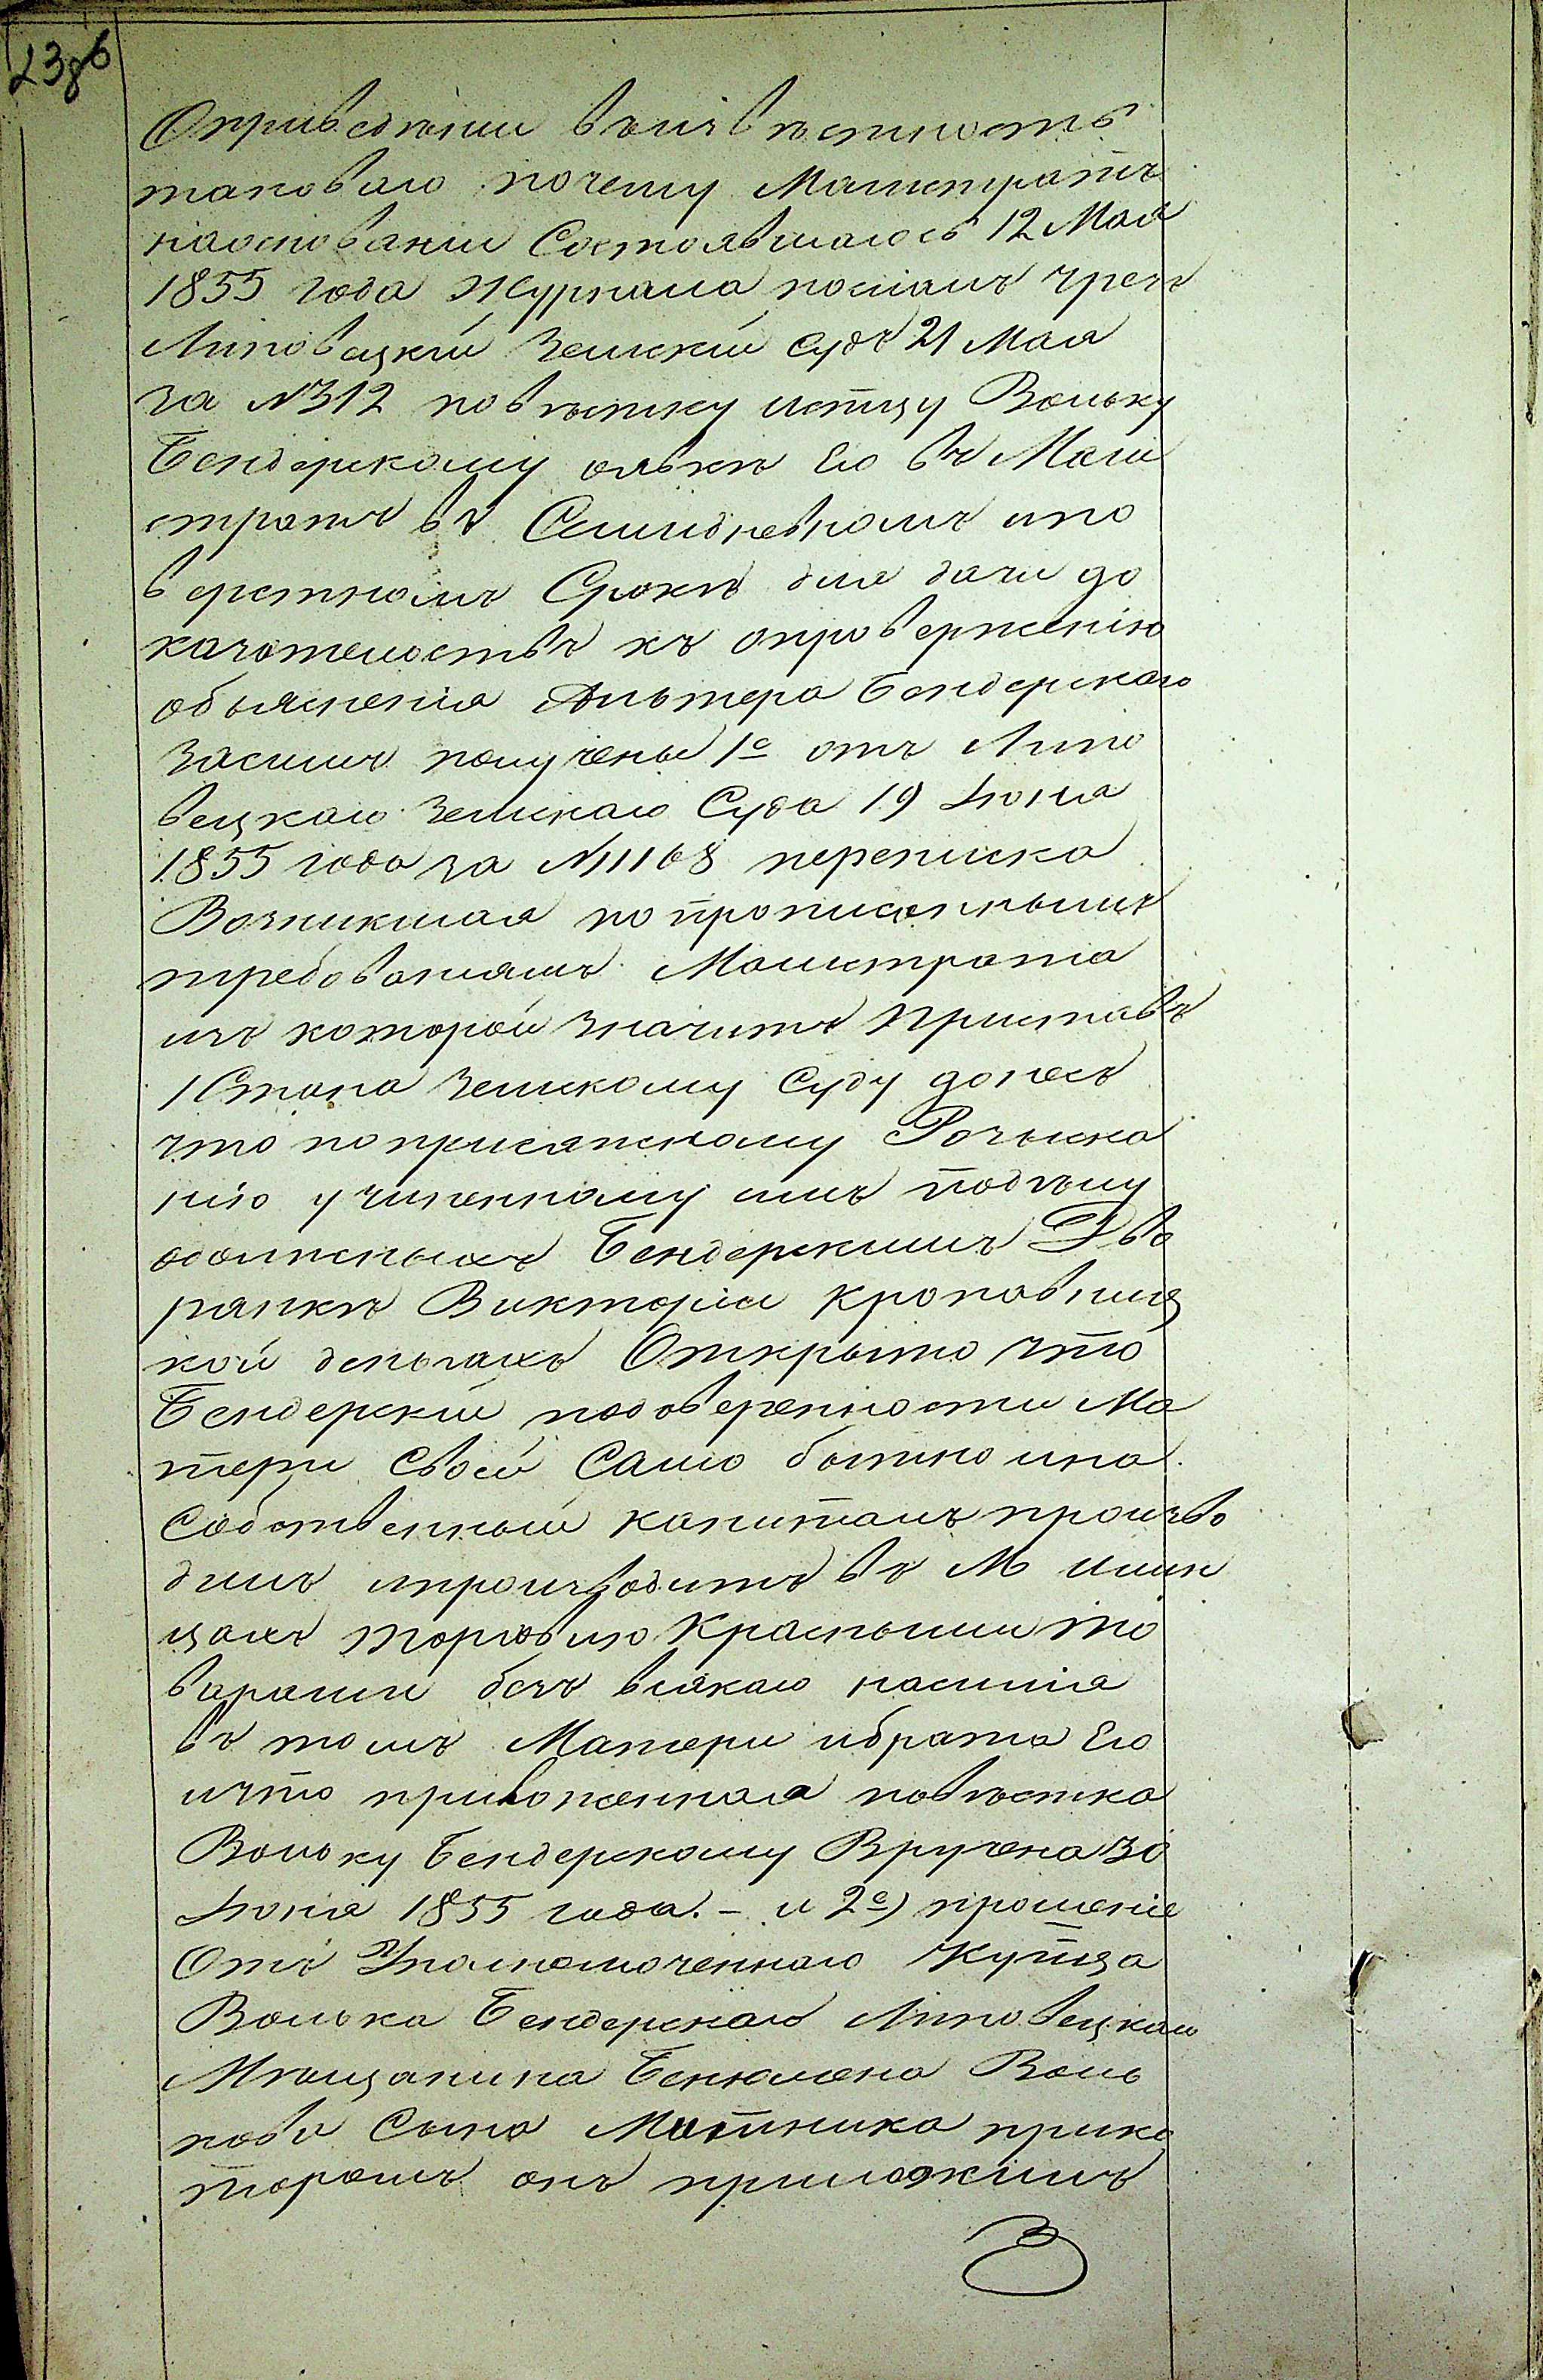 238б
Оприведеніи въизвѣстность
таковаго почему Магистратъ
наоснованіи Состоявшагося 12 Мая
1855 года Журнала послалъ чрезъ
Липовецкій Земскій Судъ 21 Мая
за №312 повѣстку истцу Вольку
Бендерскому оявкѣ Его въ Маги
стратъ въ Семидневномъ ипо
верстномъ Срокѣ для дачи до
казательствъ къ опроверженію
объясненія Альтера Бендерскаго
Засимъ получены 1е отъ Липо
вецкаго Земскаго Суда 19 Іюля
1855 года за №11168 переписка
Возникшая попрописаннымъ
требованіямъ Магистрата
изъ которой значитъ Приставъ
1 Стана Земскому Суду донесъ
что поприсяжному Розыска
нію учиненному имъ подѣлу
одолжныхъ Бендерскимъ Дво
рянкѣ Викторіи Кропавниц
кой деньгахъ Открыто что
Бендерскій подоверенности Ма
тери Своей Само бытно ина
Собственный капиталъ произво
дилъ ипроизводитъ въ М Илин
цахъ торговлю Красными то
варами безъ всякаго насилія
въ томъ Матери ибрата Его
ичто приложенная повѣстка
Вольку Бендерскому Вручена 30
Іюня 1855 года. - и 2е) прошеніе
Отъ Уполномоченнаго Купца
Волька Бендерскаго Липовецкаго
Мѣщанина Бенюмена Воль
кова Сына Мютника прико
торомъ онъ приложилъ